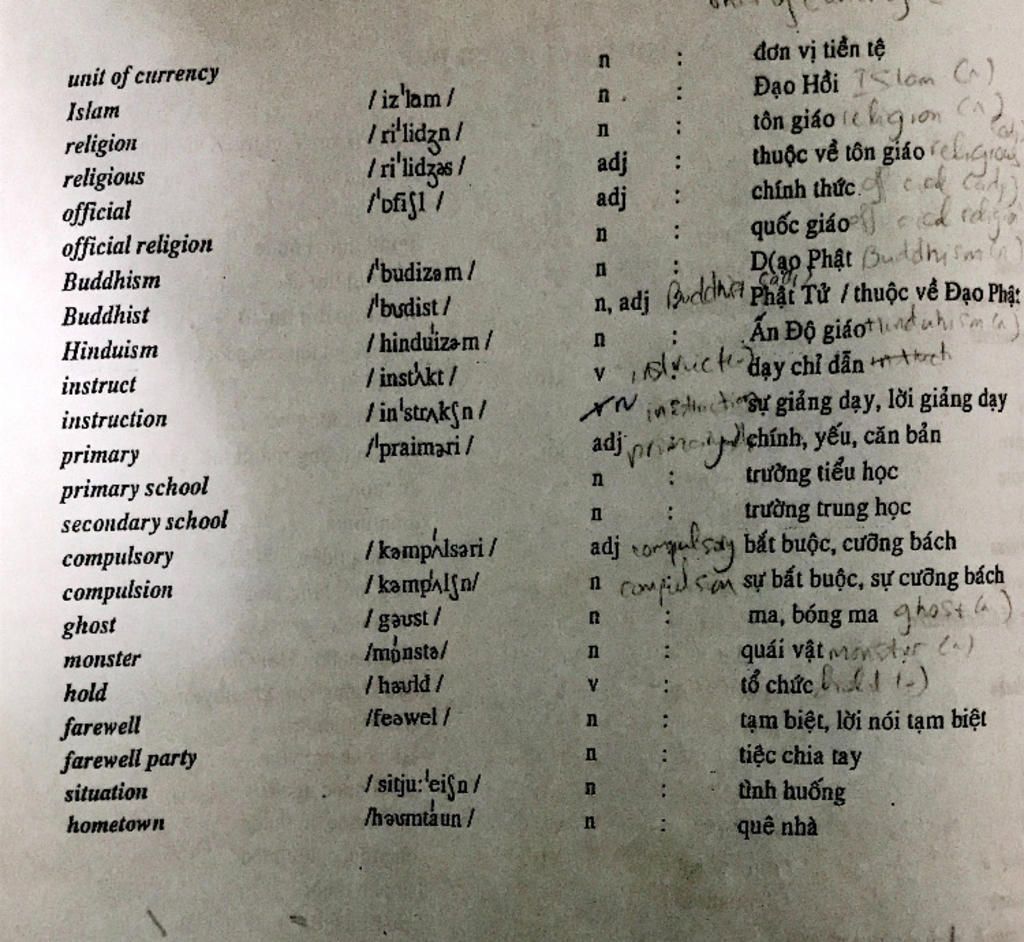 unit of currency n : đơn vị tiền tệ
Islam /iz'ləm/ n : Đạo Hồi Islam (n)
religion /ri'lidʒn/ n : tôn giáo religion (n)
religious /ri'lidʒəs/ adj : thuộc về tôn giáo religious
official /'ɒfiʃl/ adj : chính thức (adj)
official religion n : quốc giáo
Buddhism /'budizəm/ n : D(ạo Phật Buddhism (n)
Buddhist /'budist/ n, adj Phật Tử / thuộc về Đạo Phật
Hinduism /hindu'izəm/ n : Ấn Độ giáo
instruct /inst'ʌkt/ v : dạy chỉ dẫn
instruction /in'strʌkʃn/ N instruction sự giảng dạy, lời giảng dạy
primary /'praiməri/ adj chính, yếu, căn bản
primary school n : trường tiểu học
secondary school n : trường trung học
compulsory /kəmp'ʌlsəri/ adj bắt buộc, cưỡng bách
compulsion /kəmp'ʌlʃn/ n sự bắt buộc, sự cưỡng bách
ghost /gəust/ n : ma, bóng ma ghost (n)
monster /m'ɒnstə/ n : quái vật monster (n)
hold /həuld/ v : tổ chức
farewell /feəwel/ n : tạm biệt, lời nói tạm biệt
farewell party n : tiệc chia tay
situation /sitju:'eiʃn/ n : tình huống
hometown /həumt'aun/ n : quê nhà